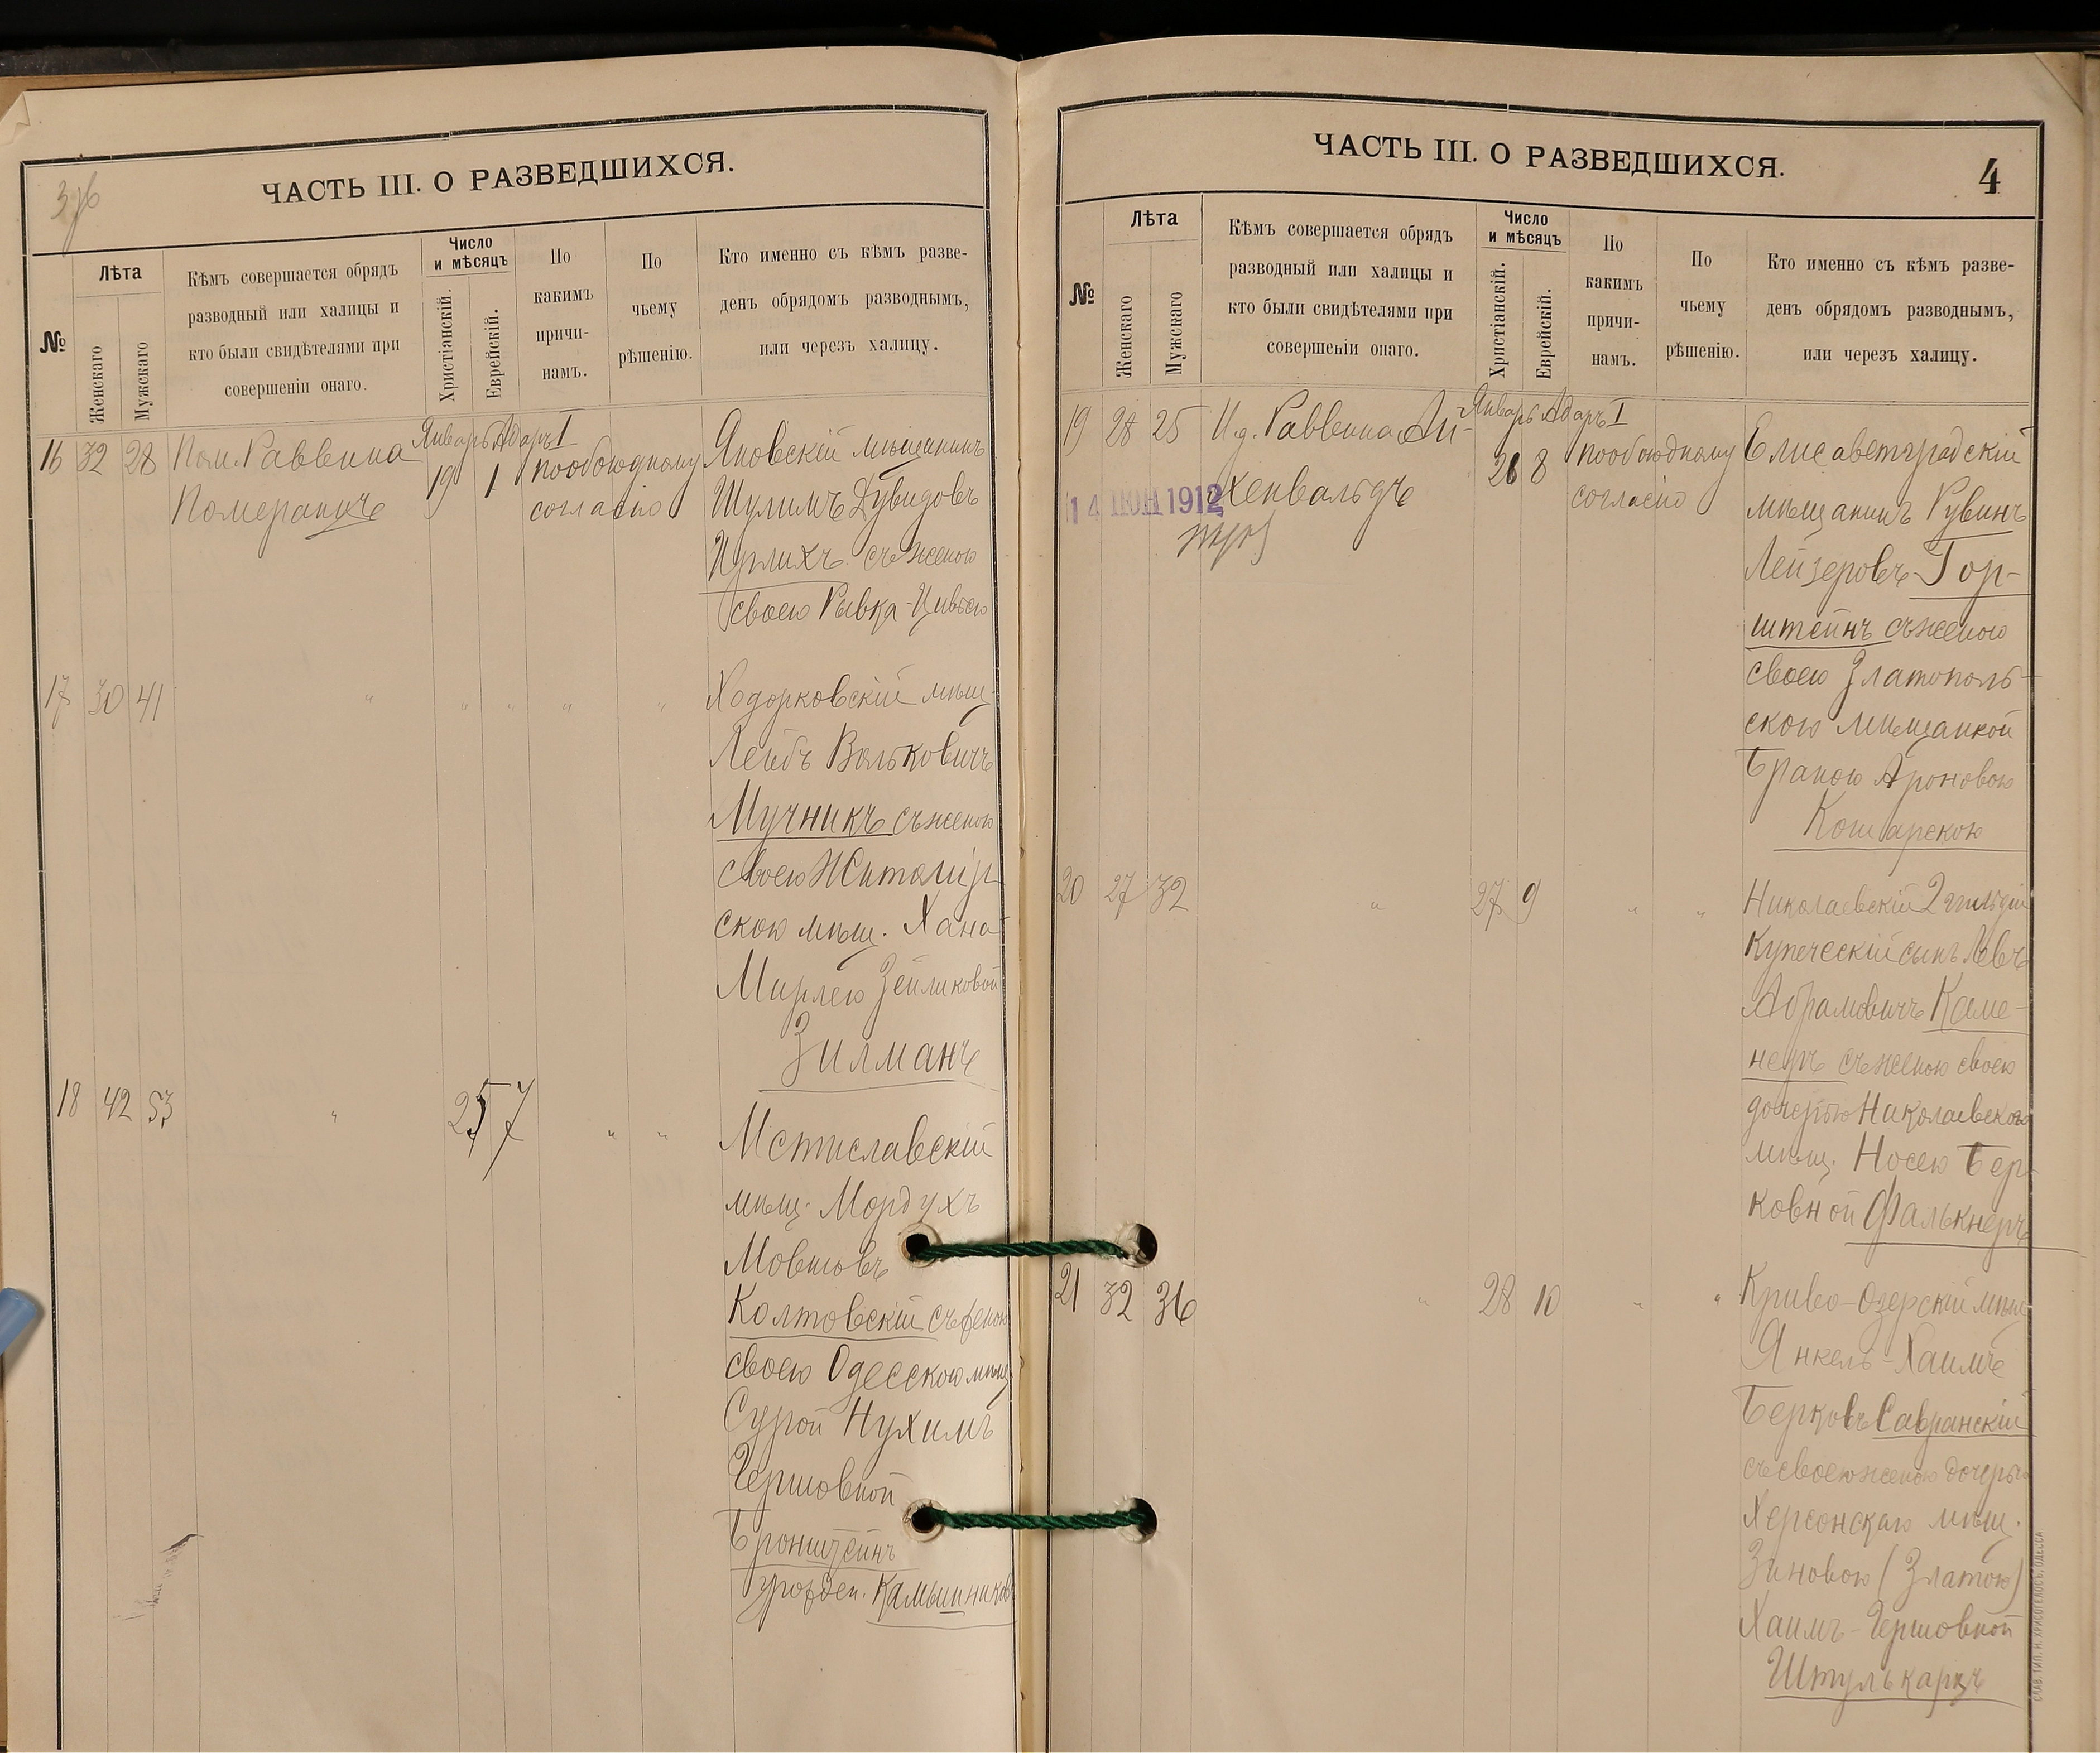 ЧАСТЬ III. О РАЗВЕДШИХСЯ.
№
Лѣта
Женскаго
Мужскаго
Кѣмъ совершается обрядъ
разводный или халицы и
кто были свидѣтелями при
совершеніи онаго.
Число
и мѣсяцъ
Христіанскій.
Еврейскій.
По
какимъ
причи-
намъ.
По
чьему
рѣшенію.
Кто именно съ кѣмъ разве-
денъ обрядомъ разводнымъ,
или черезъ халицу.
Январь Адаръ I
16 32 28 Пом. Раввина 19 1 пообоюдному Яновскій мѣщанинъ
Померанцъ согласію Шулимъ Дувидовъ
съ женою
своею Рывка-Цивьею
17 30 41 " " " " " Ходорковскій мѣщ.
Лейбъ Вольковичъ
Мучникъ съ женою
своею Житомир-
скою мѣщ. Хана-
Мирлею Зейликовой
Зилманъ
18 42 53 " 25 7 " " Мстиславскій
мѣщ. Мордухъ
Мовшовъ
Колтовскій съ женою
своею Одесскою мѣщ.
Сурой Нухимъ
Гершовной
Бронштейнъ
урожден. Камышников
ЧАСТЬ III. О РАЗВЕДШИХСЯ.
4
№
Лѣта
Женскаго
Мужскаго
Кѣмъ совершается обрядъ
разводный или халицы и
кто были свидѣтелями при
совершеніи онаго.
Число
и мѣсяцъ
Христіанскій.
Еврейскій.
По
какимъ
причи-
намъ.
По
чьему
рѣшенію.
Кто именно съ кѣмъ разве-
денъ обрядомъ разводнымъ,
или черезъ халицу.
Январь Адаръ I
19 28 25 И.д. Раввина Ли- 26 8 пообоюдному Елисаветградскій
хенвальдъ согласію мѣщанинъ Рувинъ
14 ІЮН 1912
Лейзеровъ Гор-
штейнъ съ женою
своею Златополь-
скою мѣщанкой
Браною Ароновою
Кошарскою
20 27 32 " 27 9 " " Николаевскій 2 гильдіи
Купеческій сынъ Левъ
Абрамовичъ Каме-
нецъ съ женою своею
дочерью Николаевскаго
мѣщ. Носею Бер-
ковной Фалькнеръ
21 32 36 " 28 10 " " Криво-Озерскій мѣщ.
Янкель-Хаимъ
Берковъ Савранскій
съ своею женою дочерью
Херсонскаго мѣщ.
Зиновою (Златою)
Хаимъ-Гершовной
Штулькарцъ
СЛАВ. ТИП. Н. ХРИСОГЕЛОСЪ, ОДЕССА